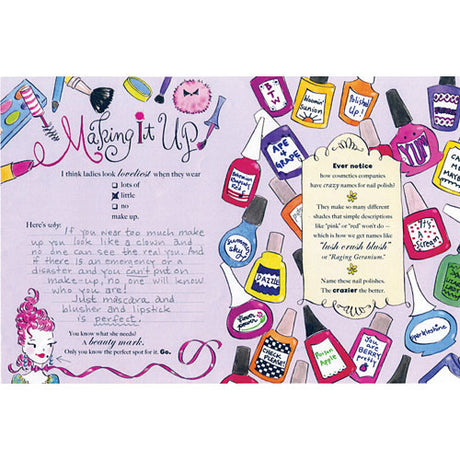 Making It Up
I think ladies look loveliest when they wear
lots of
little
no
make up.
Here's why: If you wear too much make
up you look like a clown and
no one can see the real you. And
if there is an emergency or a
disaster and you can't put on
make-up, no one will know
who you are!
Just mascara and
blusher and lipstick
is perfect.
You know what she needs?
A beauty mark.
Only you know the perfect spot for it. Go.
BTW
Bloomin'
Samson
Polished
Up!
APE
+
GRAPE
YUM
Red
Summer
Sky
DAZZLE
flower
power
CHECK
PLEASE!
Ever notice
how cosmetics companies
have crazy names for nail polish?
They make so many different
shades that simple descriptions
like "pink" or "red" won't do –
which is how we get names like
"lush crush blush"
or "Raging Geranium."
Name these nail polishes.
The crazier the better.
It's
a
Scream
Poison
Apple
You
are
BERRY
pretty
Sparkleshine